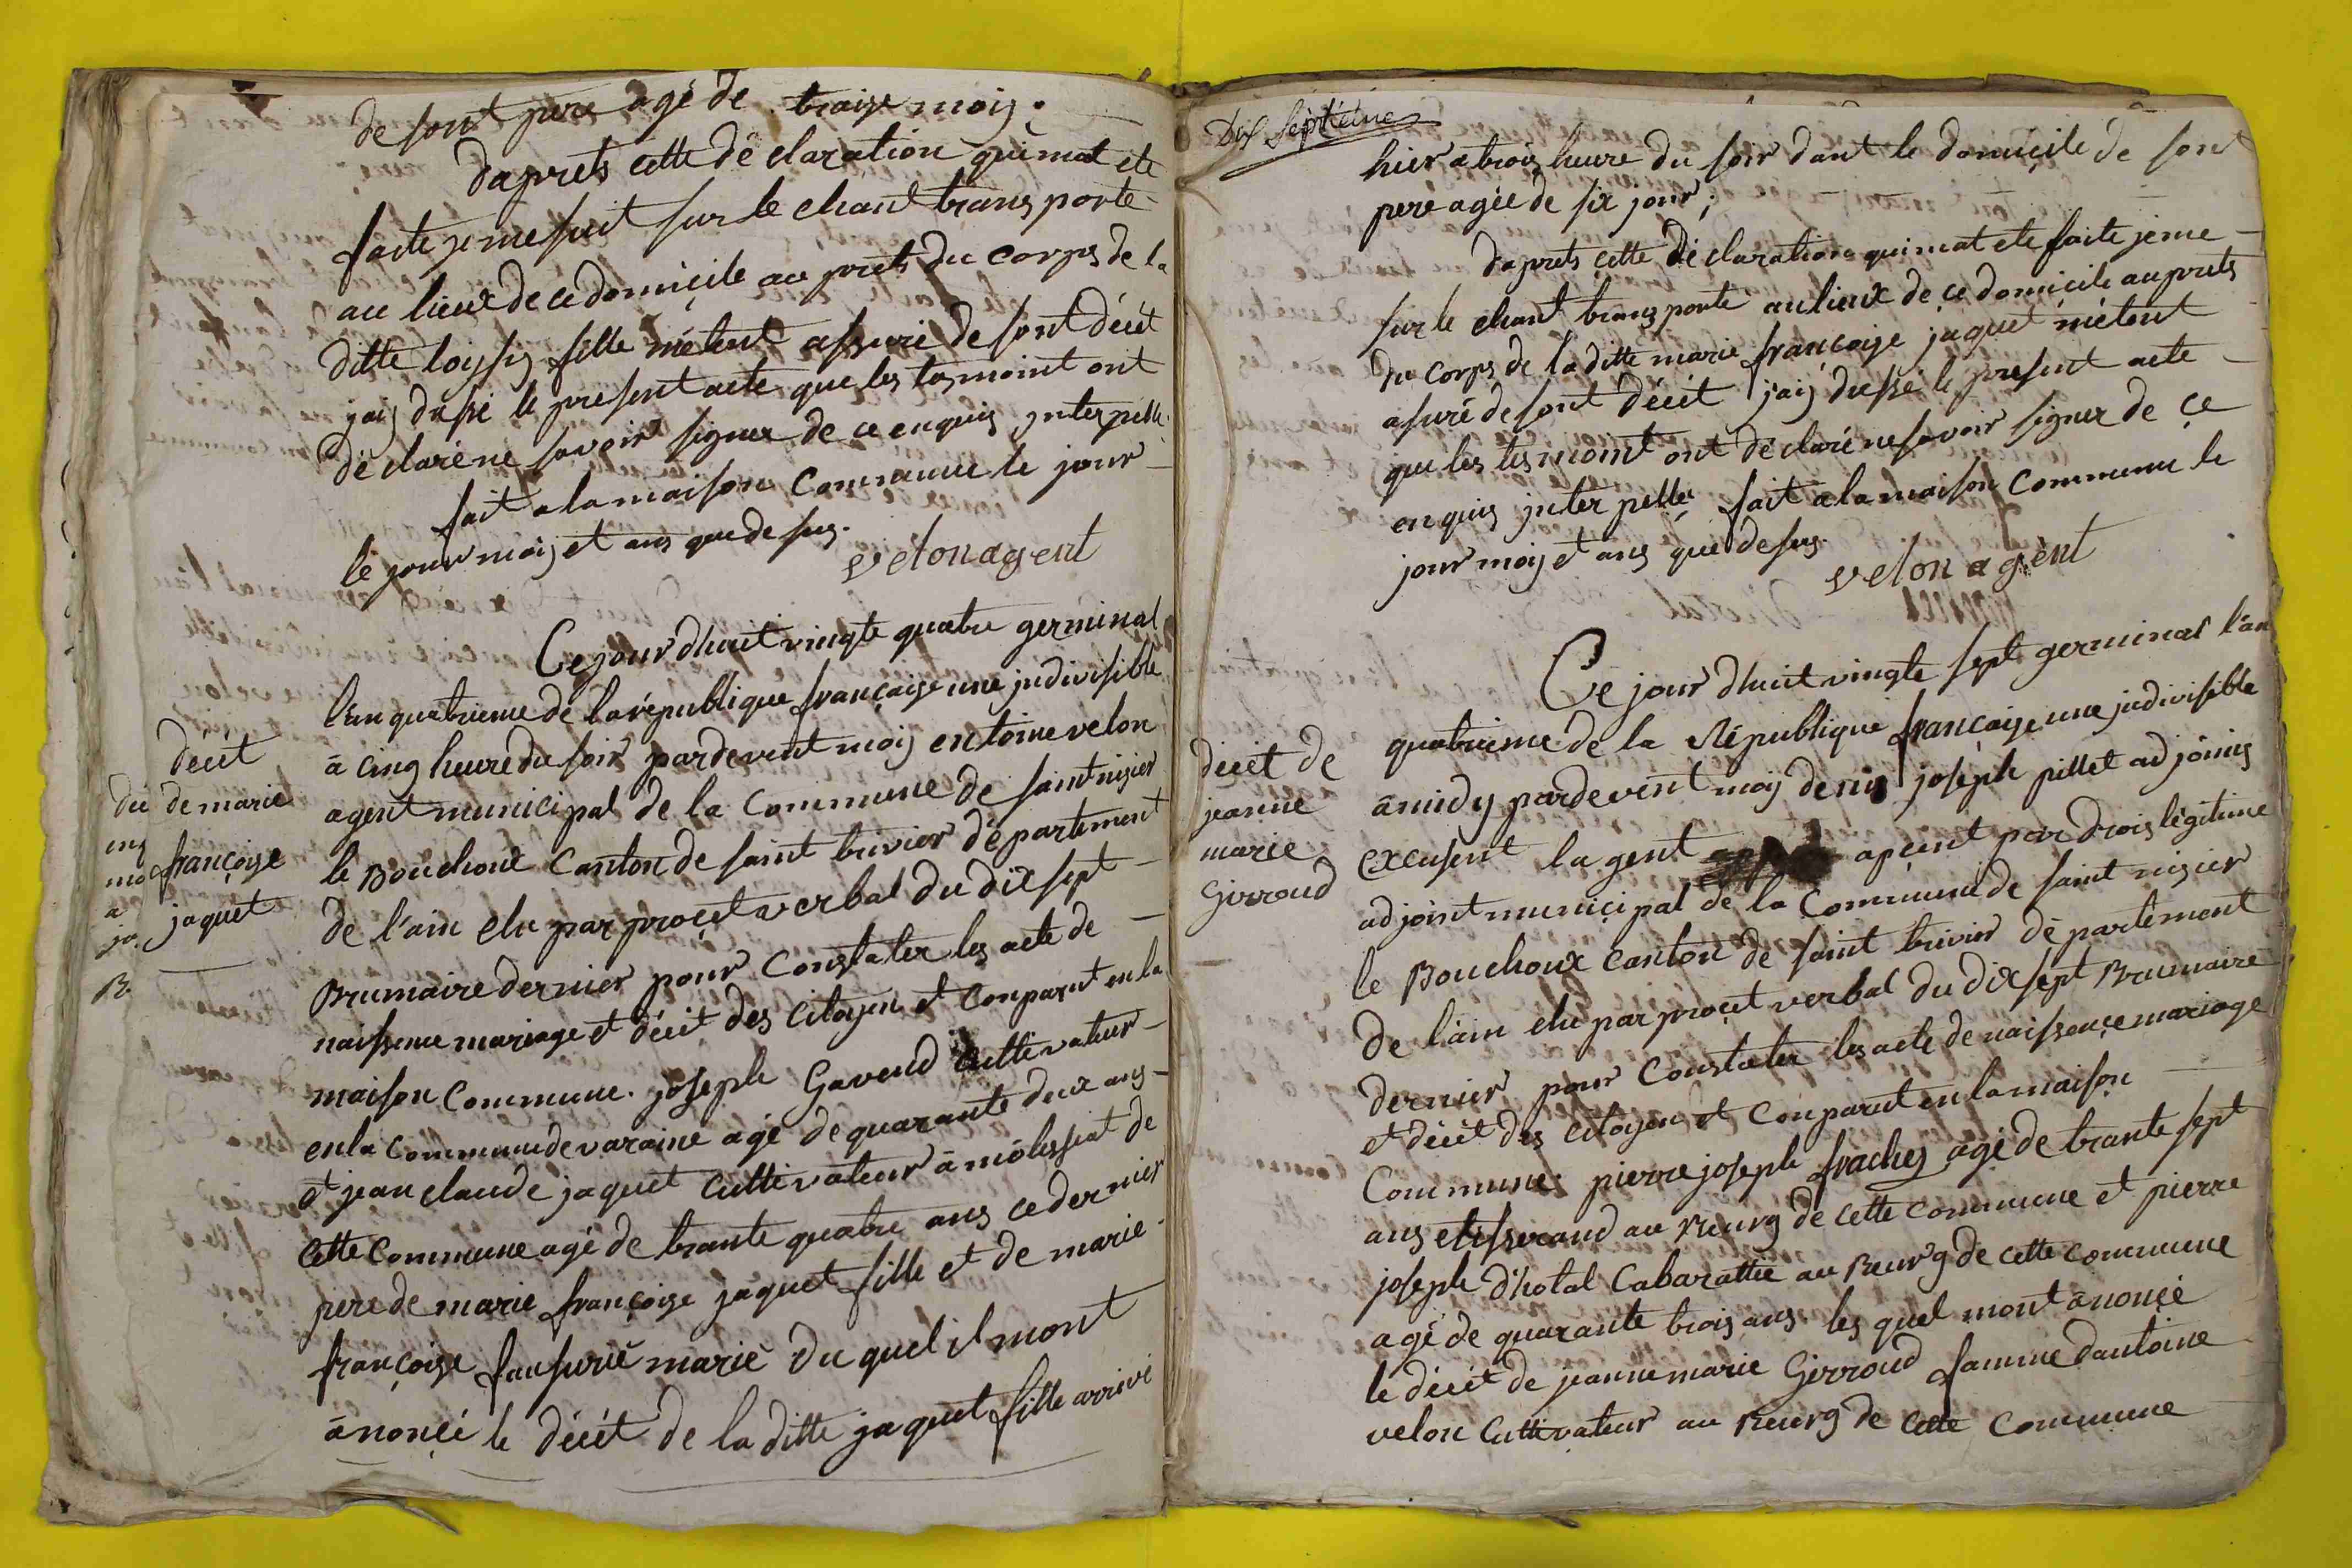 de sont pere agé de traize mois.
daprets cette dé claration quimat ete
faite je me suit sur le chant transporte
au lieux de ce domiçile au prets du corps de la
ditte loissis fille métent assuré de sont décét
jais dressé le present acte que les tesmoint ont
dé claré ne savoir signer de ce enquis interpellé
fait a la maison commune le jour
le jour mois et ans que desus.
velon agent
Ce jour dhuit vingte quatre germinal
l'an quatrieme de la république françaige une jndivisible
à cinq heure du soir pardevent mois entoine velon
agent municipal de la commune de saint nisier
le Bouchoux canton de saint trivier département
de l'ain elu par proçet verbal du dix sept
Brumaire dernier pour constater les acte de
naissence mariage et décét des citoyen et conparut en la
maison commune. joseph Gavend cultivateur
en la commune de varaine agé de quarante deux ans
et jean claude jaquet cultivateur à molessiat de
cette commune agé de trante quatre ans ce dernier
pere de marie françoise jaquet fille et de marie
françoise marié du quel il mont
ànonçé le décét de la ditte jaquet fille arrivé
décét
de marie
françoise
jaquet
du
Dix Septieme
hier a trois heure du soir dant le domiçile de sont
pere agée de six jour;
daprets cette dé claration quimat ete faite jeme
sur le chant transporté au lieux de ce domicile auprets
du corps de la ditte marie françoise jaquet métent
asuré de sont décét jais dressé le present acte
que les tesmoint ont déclaré ne savoir signer de çe
enquis jnter pellé fait a la maison commune le
jour mois et ans que desus.
velon agent
Ce jour dhuit vingte sept germinal l'an
quatrieme de la République françaige une jndivisible
à midy pardevent mois denis joseph pillet adjoints
excusent la gent apcent par drois légitime
adjoint municipal de la commune de saint nisier
le Bouchoux canton de saint trivier département
de l'ain elu par proçet verbal du dix sept Brumaire
dernier pour constater les acte de naissençe mariage
et décét des citoyen et conparut en la maison
commune pierre joseph frachey agé de trante sept
ans etisserand au Bourg de cette commune et pierre
joseph d'hotal cabarattié au Bourg de cette commune
agé de quarante trois ans. les quel mont ànonçé
le décét de jeanne marie Girroud famme dantoine
velon cultivateur au Bourg de cette commune
décét de
jeanne
marie
Girroud